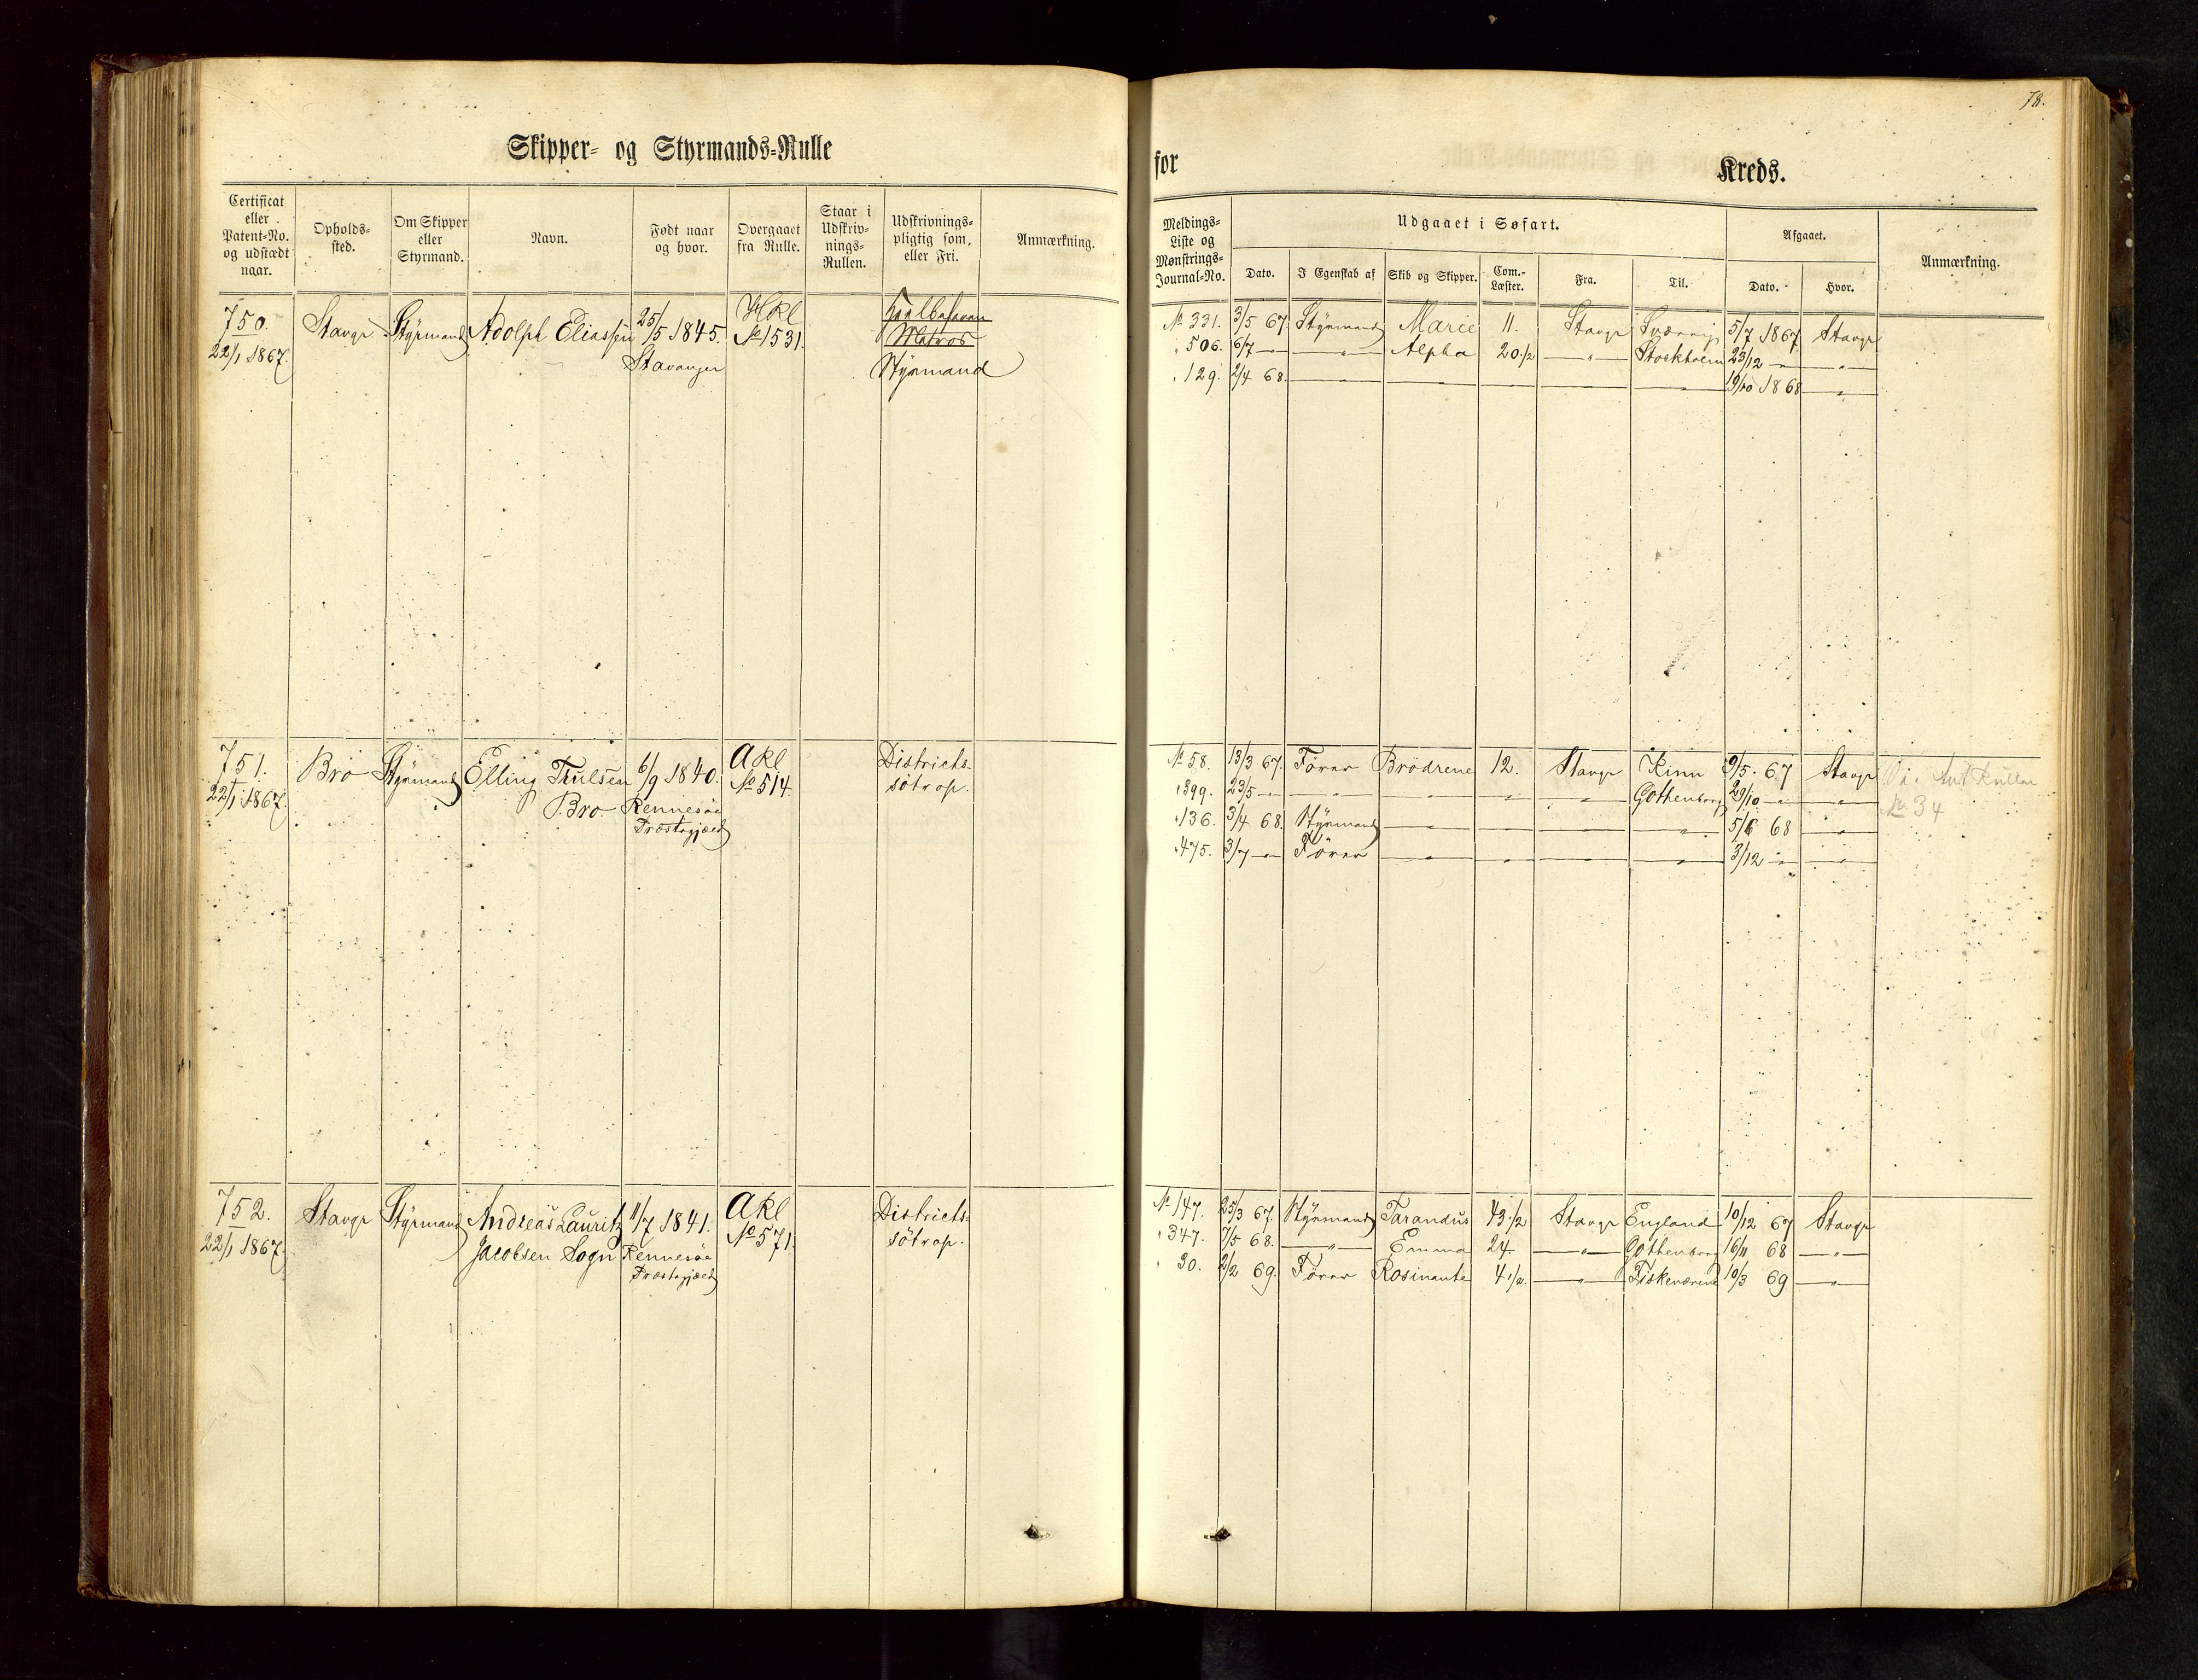 78.
Skipper- og Styrmands-Rulle
for Kreds.
Certificat eller Patent-No. og udstædt naar.
Opholds-sted.
Om Skipper eller Styrmand.
Navn.
Født naar og hvor.
Overgaaet fra Rulle.
Staar i Udskriv-nings-Rullen.
Udskrivnings-pligtig som, eller Fri.
Anmærkning.
Meldings-Liste og Mønstrings-Journal-No.
Udgaaet i Søfart.
Dato.
I Egenskab af
Skib og Skipper.
Com.-Læster.
Fra.
Til.
Afgaaet.
Dato.
Hvor.
Anmærkning.
750. Stavgr Styrmand Adolph Eliassen 25/5 1845. HKl
22/1 1867. Stavanger No 1531.
Matros
Styrmand
No 331. 3/5 67. Styrmand Marie 11. Stavgr 5/7 1867 Stavgr
" 506. 6/7 — — " — Alpha 20 1/2 — " — Stockholm 23/12 — — " —
" 129. 2/4 68. — " — — " — — " — — " — — " — 19/10 1868 — " —
751. Bro Styrmand Elling Thulsen 6/9 1840. AKl Districts-
22/1 1867. Bro Rennesöe No 514. sötrop.
Præstegjæld
No 58. 13/3 67. Förer Brödrene 12. Stavgr Kinn 9/5. 67 Stavgr
" 399. 23/5 — — " — — " — " — " — Gothenborg 29/10 — — " —
" 136. 3/4 68. Styrmand — " — " — " — — " — 5/6 68 — " —
" 475. 3/7 — Förer — " — " — " — — " — 3/12 — — " —
No 34
752. Stavgr Styrmand Andreas Lauritz 11/7 1841. AKl Districts-
22/1 1867. Jacobsen Sogn Rennesöe No 571. sötrop.
Præstegjæld
No 147. 25/3 67. Styrmand Tarandus 43 1/2 Stavgr England 10/12 67 Stavgr
" 347. 7/5 68. — " — Emma 24 — " — Gothenborg 16/11 68 — " —
" 30. 2/2 69. Förer Rosinante 4 1/2 — " — Fiskeværene 10/3 69 — " —